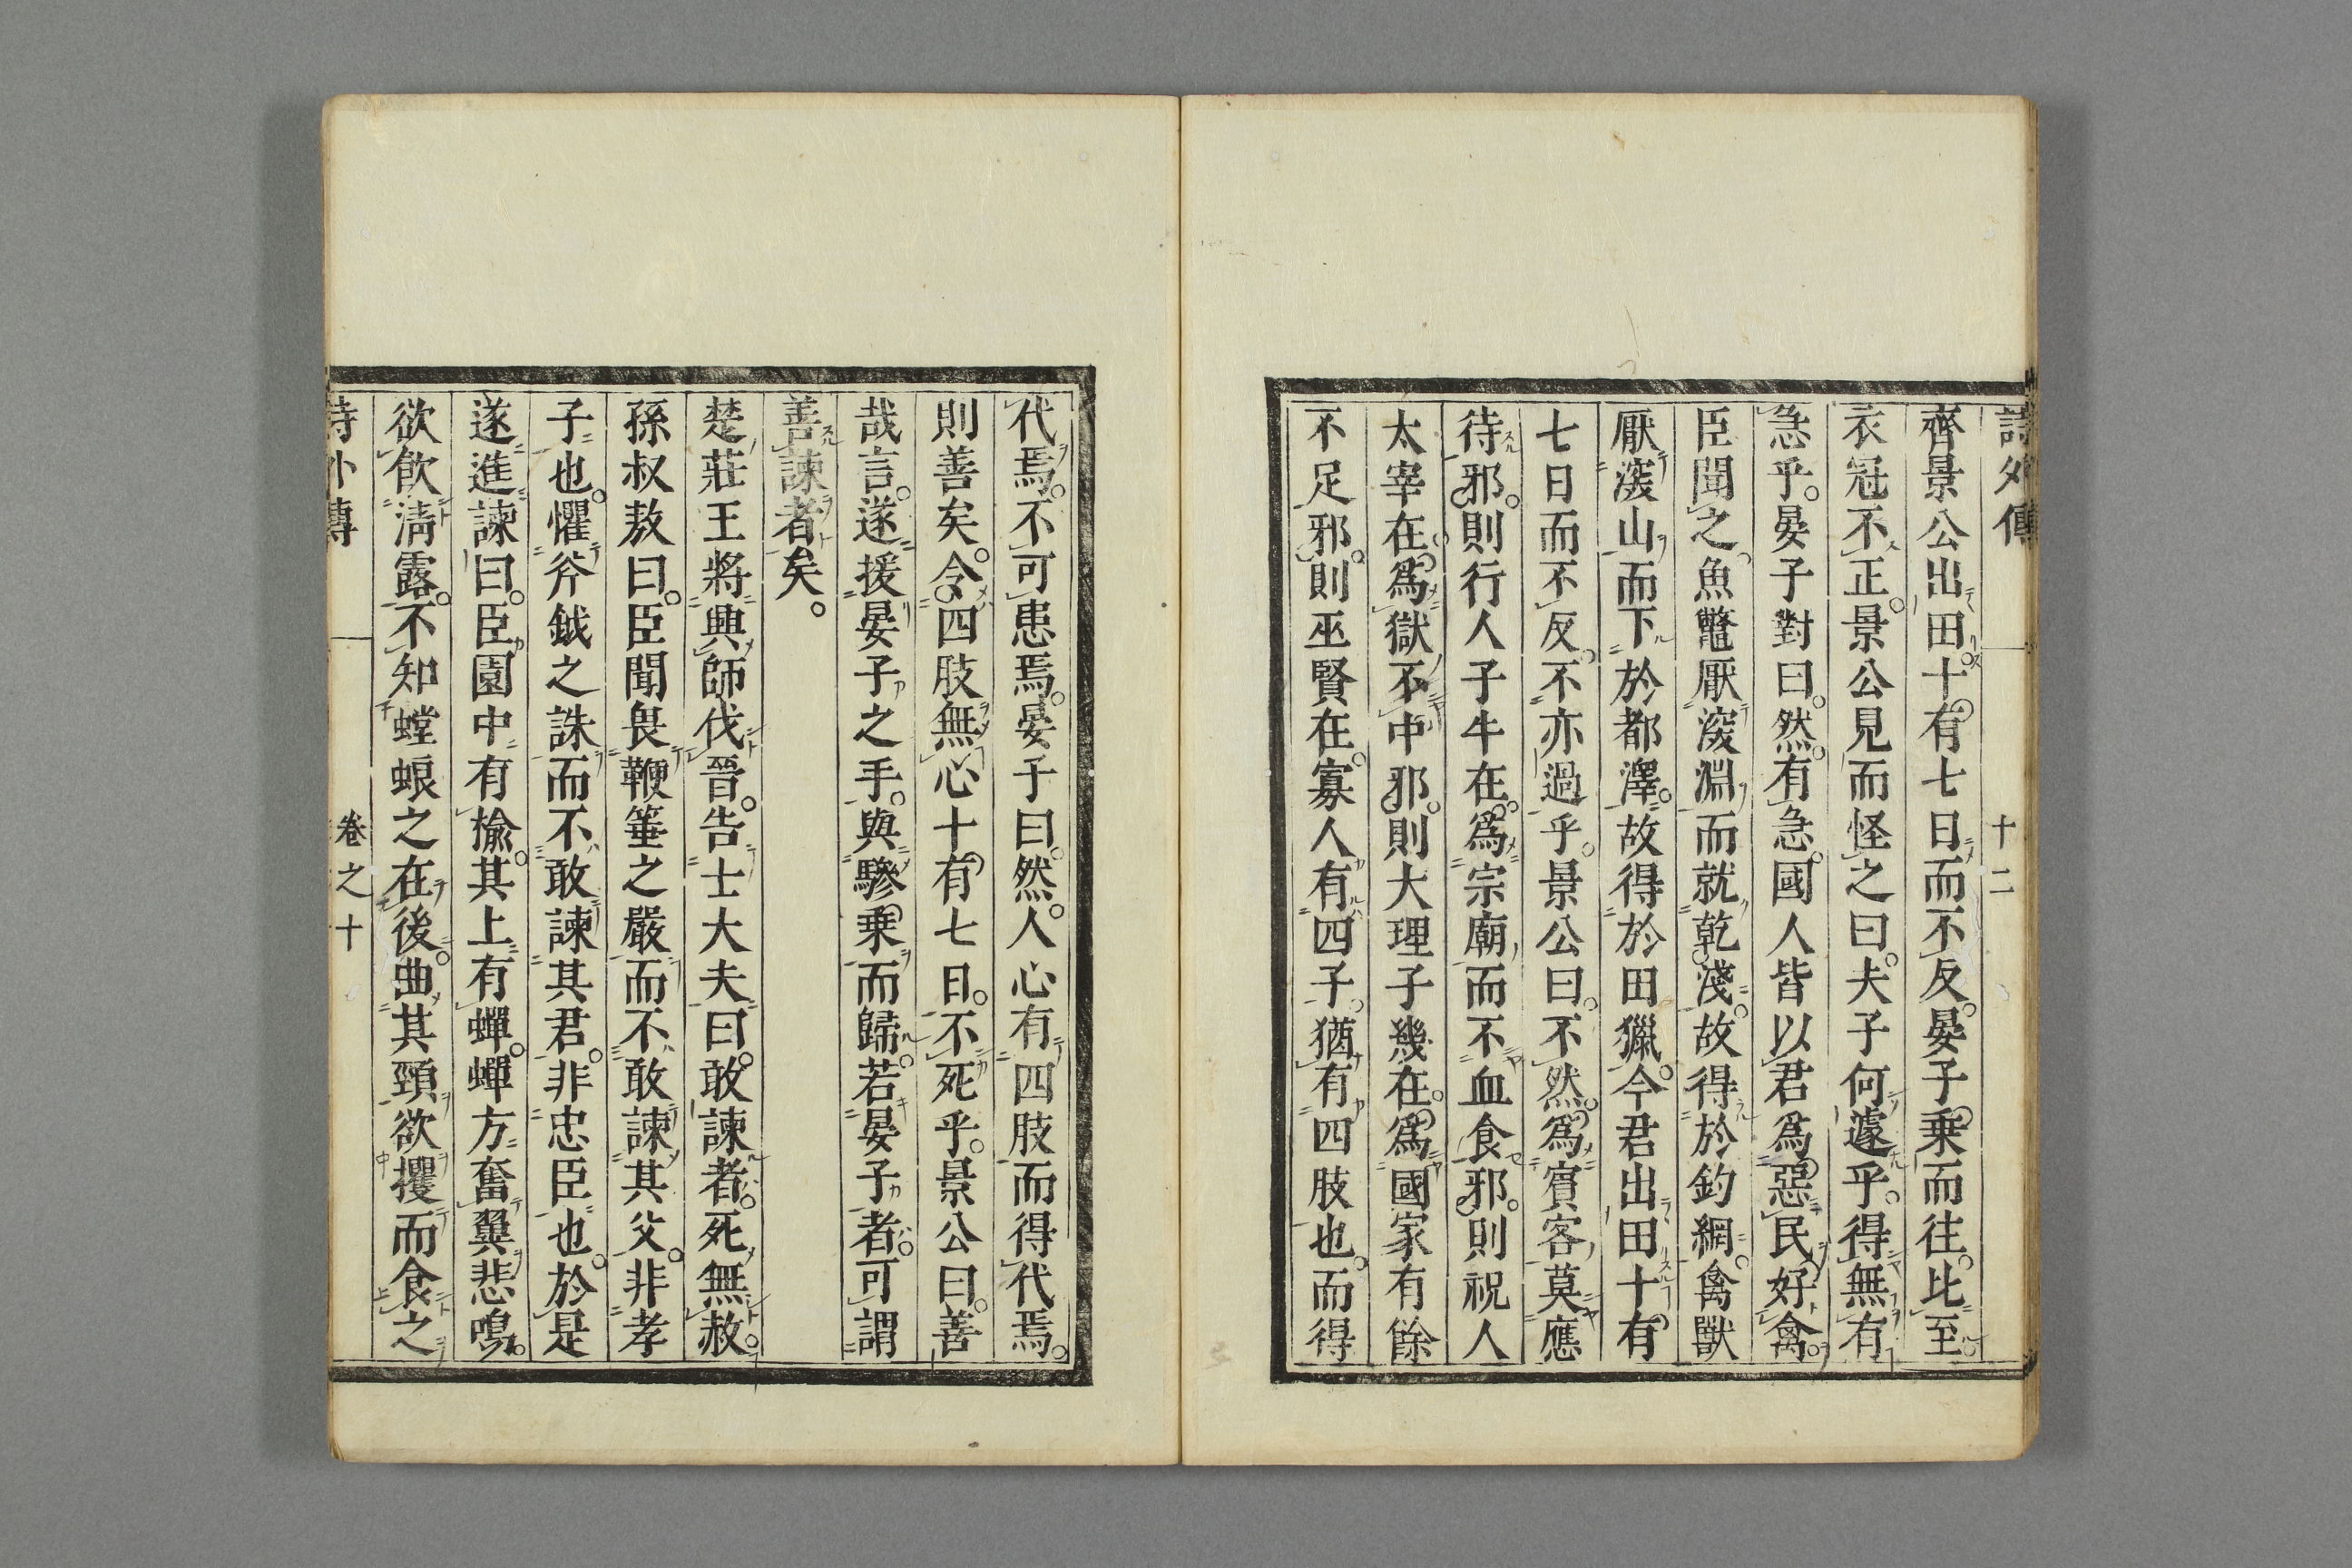 詩外傳 十二
齊景公出田十有七日而不反晏子乗而往比至
衣冠不正景公見而怪之曰夫子何遽乎得無有
急乎晏子對曰然有急國人皆以君為惡民好禽
臣聞之魚鼈厭深淵而就乾淺故得於釣網禽獸
厭深山而下於都澤故得於田獵今君出田十有
七日而不反不亦過乎景公曰不然為賓客莫應
待邪則行人子牛在為宗廟而不血食邪則祝人
太宰在為獄不中邪則大理子幾在為國家有餘
不足邪則巫賢在寡人有四子猶有四肢也而得
代焉不可患焉晏子曰然人心有四肢而得代焉
則善矣令四肢無心十有七日不死乎景公曰善
哉言遂援晏子之手與驂乗而歸若晏子者可謂
善諫者矣
楚莊王將興師伐晉告士大夫曰敢諫者死無赦
孫叔敖曰臣聞畏鞭箠之嚴而不敢諫其父非孝
子也懼斧鉞之誅而不敢諫其君非忠臣也於是
遂進諫曰臣園中有榆其上有蟬蟬方奮翼悲鳴
欲飲淸露不知螳蜋之在後曲其頸欲攫而食之
詩外傳 卷之十